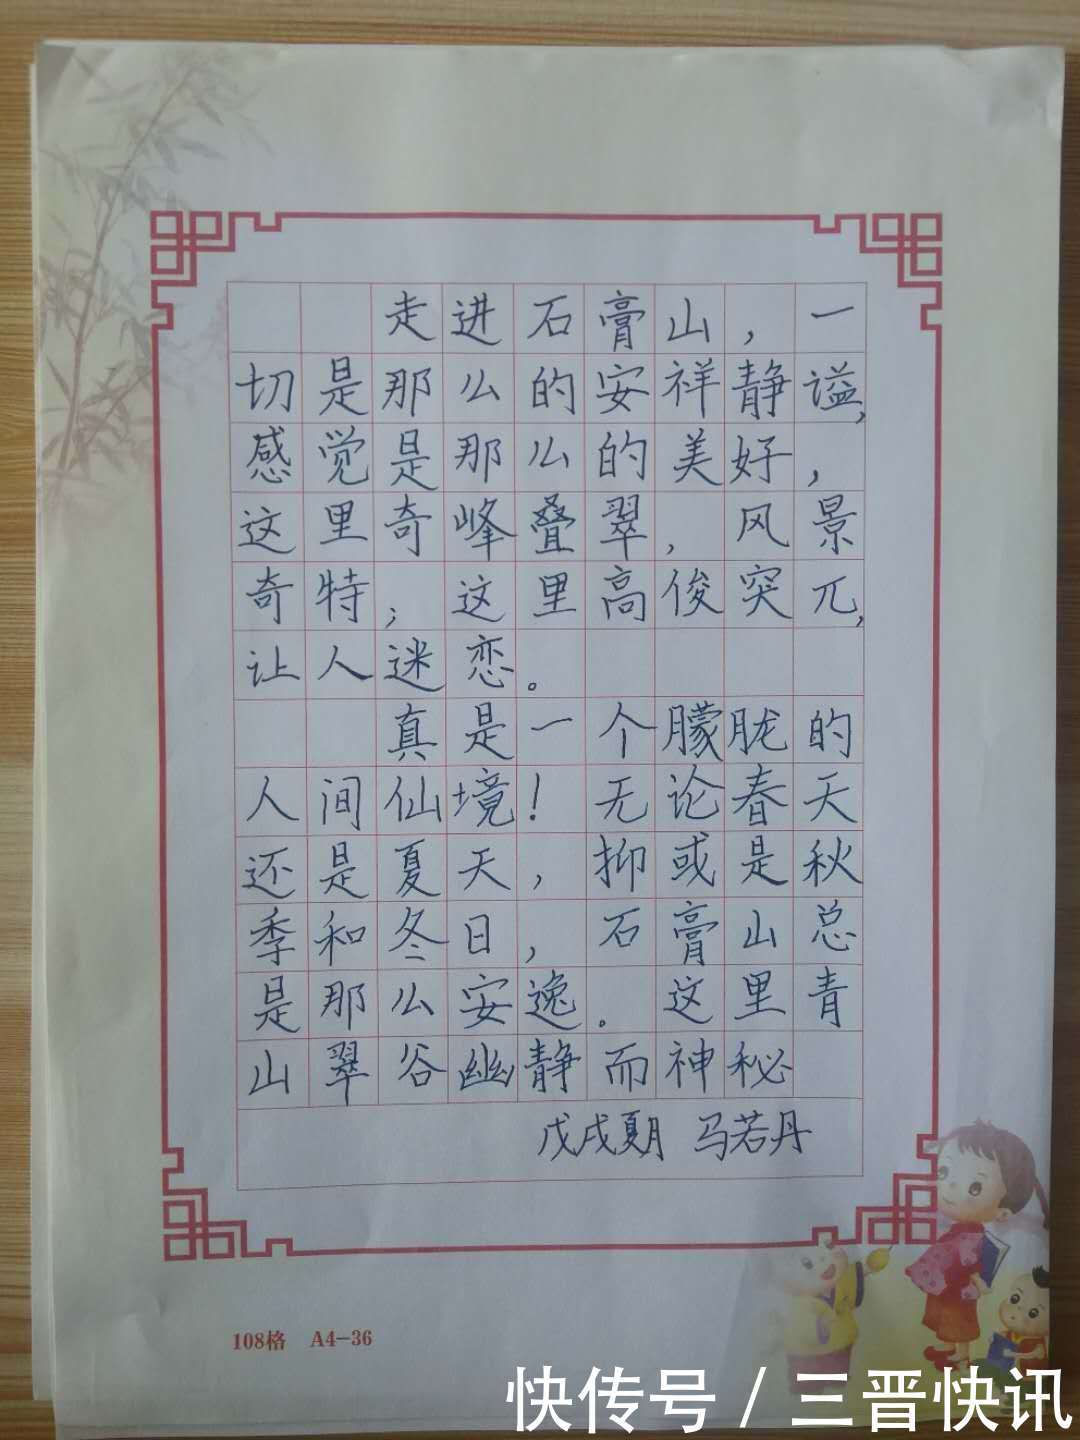 走进石膏山，一
切是那么的安祥静谧，
感觉是那么的美好，
这里奇峰叠翠，风景
奇特；这里高俊突兀，
让人迷恋。
真是一个朦胧的
人间仙境！无论春天
还是夏天，抑或是秋
季和冬日，石膏山总
是那么安逸。这里青
山翠谷幽静而神秘
戊戌夏月 马若丹
108格 A4-36
快传号 / 三晋快讯